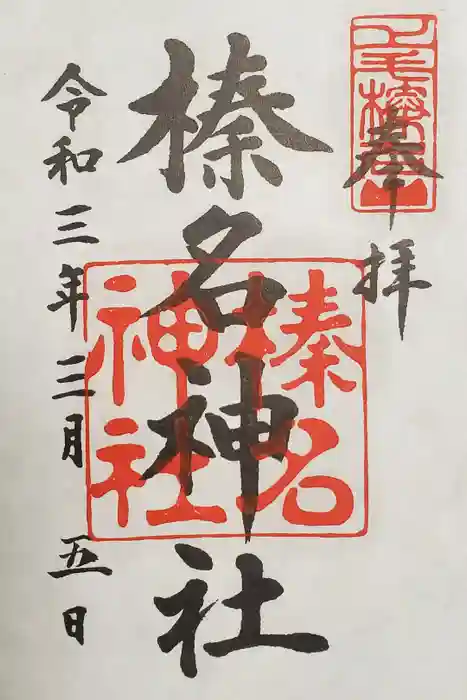 奉拝
榛名神社
榛名
神社
令和三年三月五日